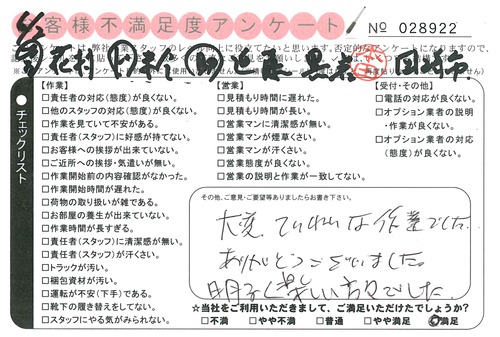 お客様不満足度アンケート
No 028922
【作業】
□責任者の対応(態度)が良くない。
□他のスタッフの対応(態度)が良くない。
□作業を見ていて不安がある。
□責任者(スタッフ)に好感が持てない。
□お客様への挨拶が出来ていない。
□ご近所への挨拶・気遣いが無い。
□作業開始前の内容確認がなかった。
□作業開始時間が遅れた。
□荷物の取り扱いが雑である。
□お部屋の養生が出来ていない。
□作業時間が長すぎる。
□責任者(スタッフ)に清潔感が無い。
□責任者(スタッフ)が汗くさい。
□トラックが汚い。
□梱包資材が汚い。
□運転が不安(下手)である。
□靴下の履き替えをしてない。
□スタッフにやる気がみられない。
【営業】
□見積もり時間に遅れた。
□見積もり時間が長い。
□営業マンに清潔感が無い。
□営業マンが煙草くさい。
□営業マンが汗くさい。
□営業態度が良くない。
□営業の説明と作業が一致してない。
【受付・その他】
□電話の対応が良くない。
□オプション業者の説明
・作業が良くない。
□オプション業者の対応
(態度)が良くない。
その他、ご意見・ご要望等ありましたらお書き下さい。
大変ていねいな作業でした。
ありがとうございました。
明るく楽しい方々でした。
☆当社をご利用いただきまして、ご満足いただけたでしょうか?
□不満 □やや不満 □普通 □やや満足 □満足
チェックリスト